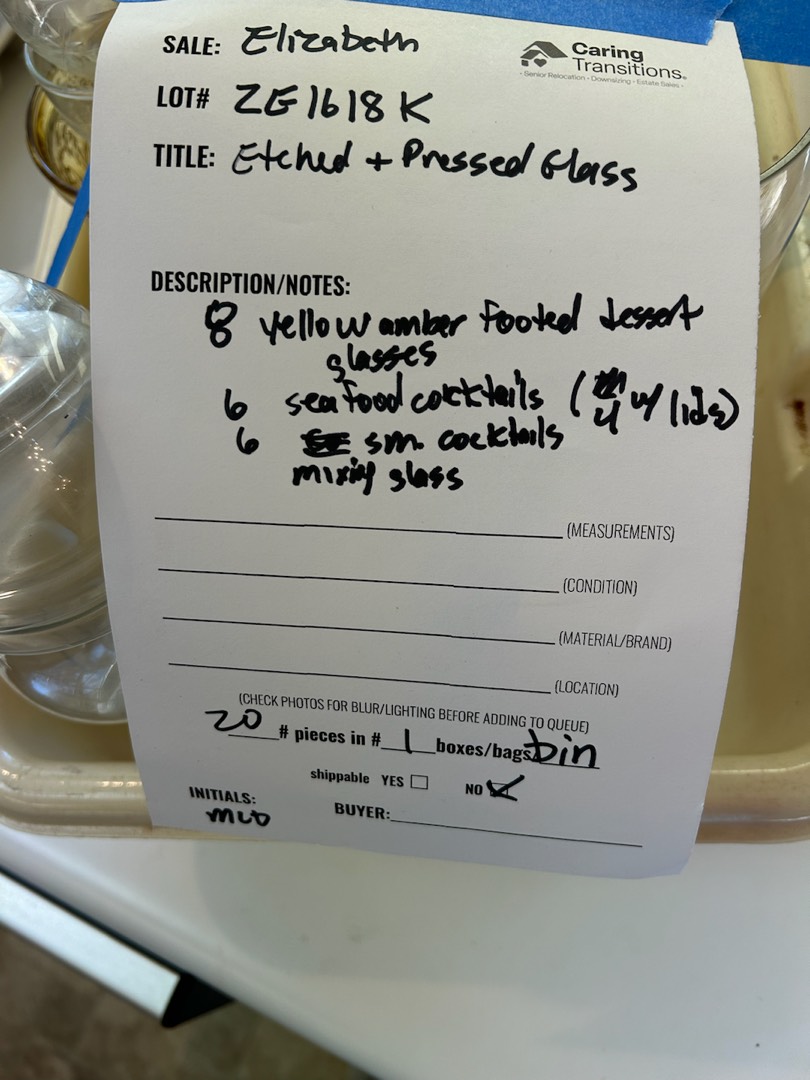 SALE: Elizabeth
Caring
Transitions®
• Senior Relocation • Downsizing • Estate Sales •
LOT# ZE1618K
TITLE: Etched + Pressed Glass
DESCRIPTION/NOTES:
8 yellow amber footed dessert
glasses
6 seafood cocktails (4 w/ lids)
6 sm. cocktails
mixing glass
(MEASUREMENTS)
(CONDITION)
(MATERIAL/BRAND)
(LOCATION)
(CHECK PHOTOS FOR BLUR/LIGHTING BEFORE ADDING TO QUEUE)
20 # pieces in # 1 boxes/bags bin
shippable YES NO
INITIALS:
BUYER: